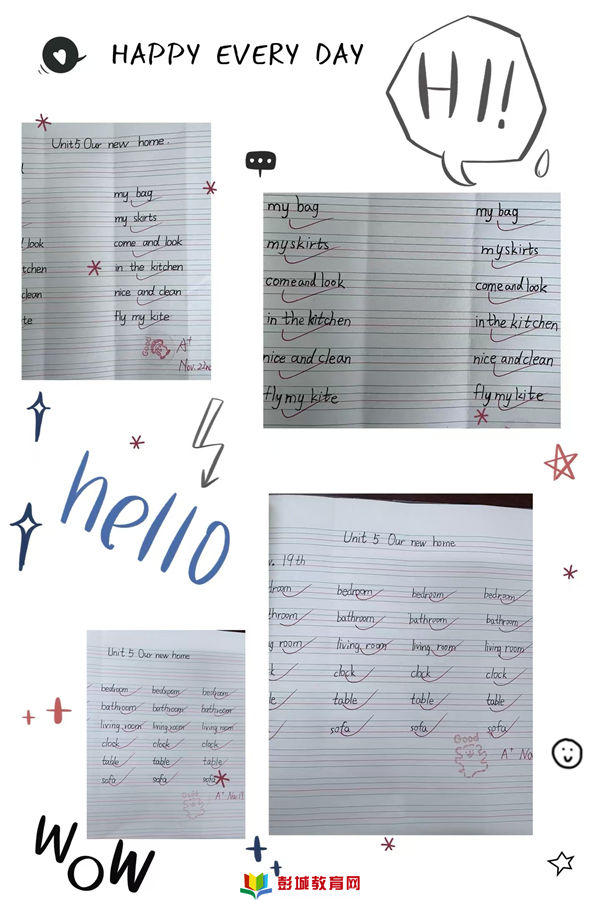 HAPPY EVERY DAY
HI!!
Unit 5 Our new home.
my bag
my skirts
look come and look
tchen in the kitchen
clean nice and clean
te fly my kite
Good A+
Nov. 22nd
my bag my bag
my skirts my skirts
come and look come and look
in the kitchen in the kitchen
nice and clean nice and clean
fly my kite fly my kite
hello
Unit 5 Our new home
19th
droom bedroom bedroom bedroom
throom bathroom bathroom bathroom
g room living room living room living room
clock clock clock
le table table table
sofa sofa sofa
Good
A+ No
Unit 5 Our new home
bedroom bedroom bedroom
bathroom bathroom bathroom
living room living room living room
clock clock clock
table table table
sofa sofa sofa
Good
A+ Nov 19
WOW
彭城教育网